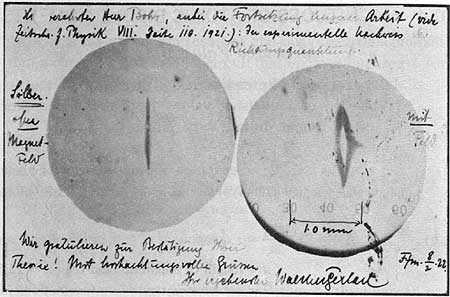 verehrter Herr Bohr, anbei die Fortsetzung unserer Arbeit (siehe
Zeitschr. f. Physik VIII. Seite 110. 1921.): Der experimentelle Nachweis
Richtungsquantelung.
Silber
ohne
Magnet-
feld
mit
Feld
30 40 60
1.0 mm
Wir gratulieren zur Bestätigung Ihrer
Theorie! Mit hochachtungsvollen Grüssen
Ihr ergebenster Walther Gerlach.
Ffm. 8/2. 22.